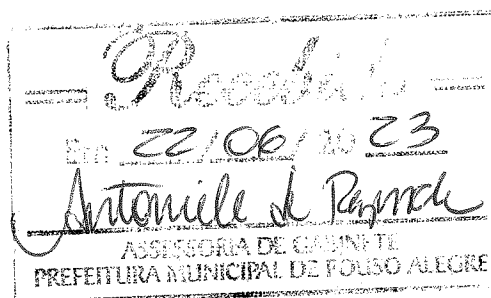 Recebido
Em 22/06/2023
Antoniele de Rezende
ASSESSORIA DE GABINETE
PREFEITURA MUNICIPAL DE POUSO ALEGRE